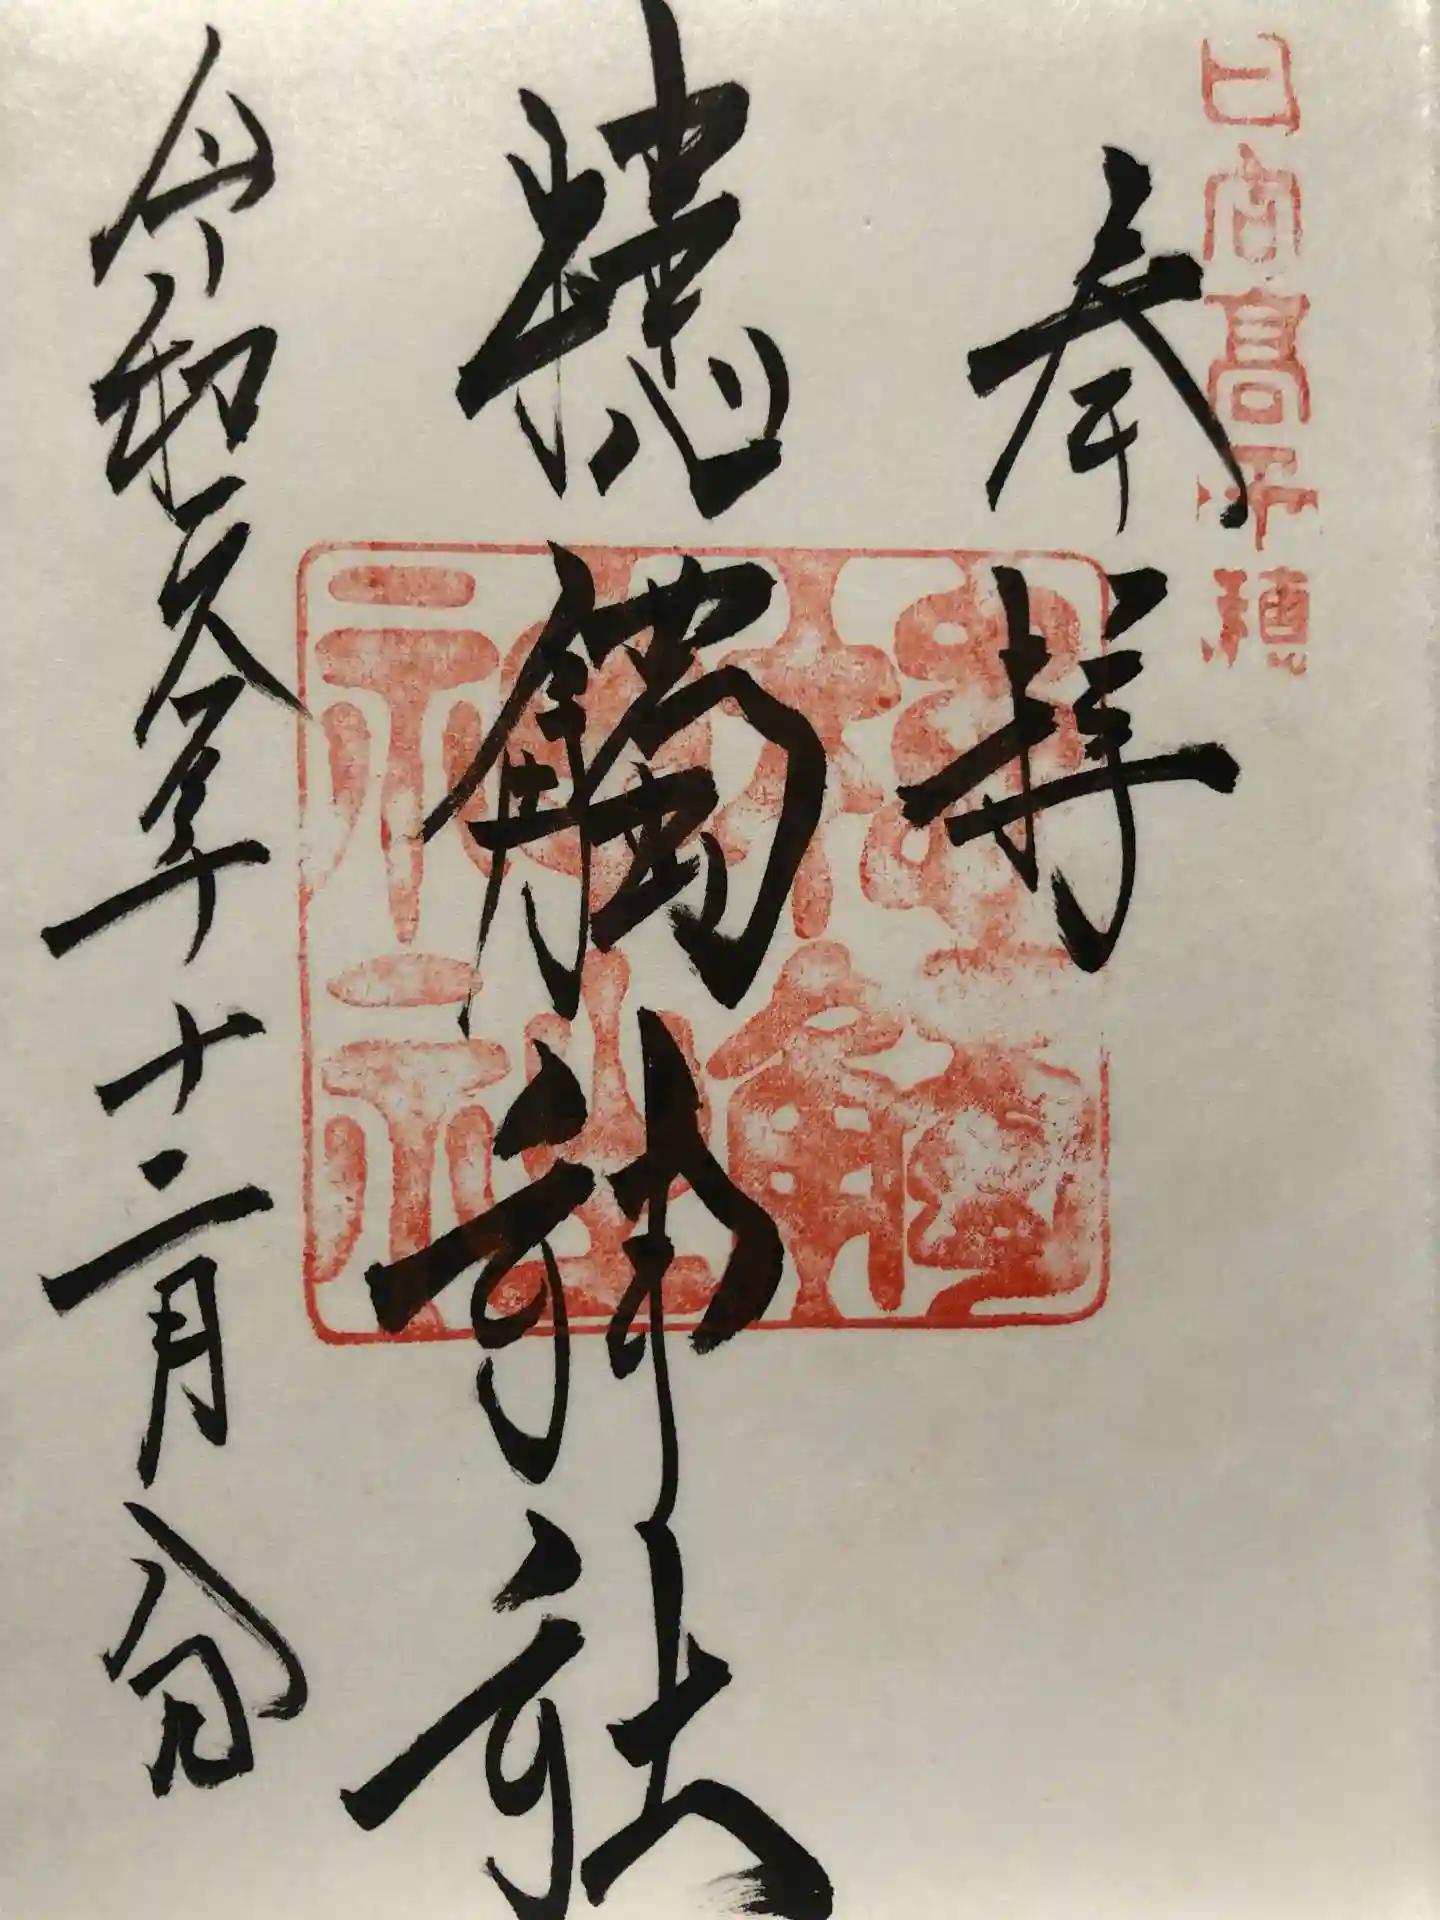 日向高千穂
奉拝
槵觸神社
槵觸神社
令和年十二月八日